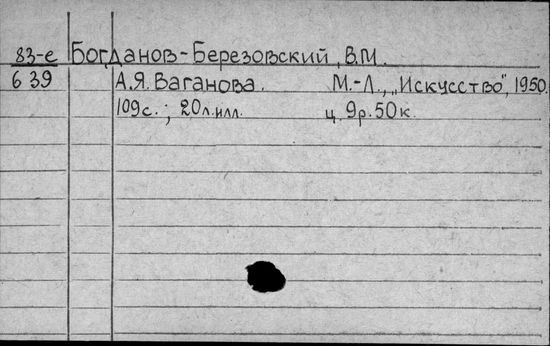 83-е Богданов-Березовский, В.М.
639 А.Я. Ваганова. М.-Л., „Искусство", 1950.
109с.; 20л.илл. ц. 9р.50к.